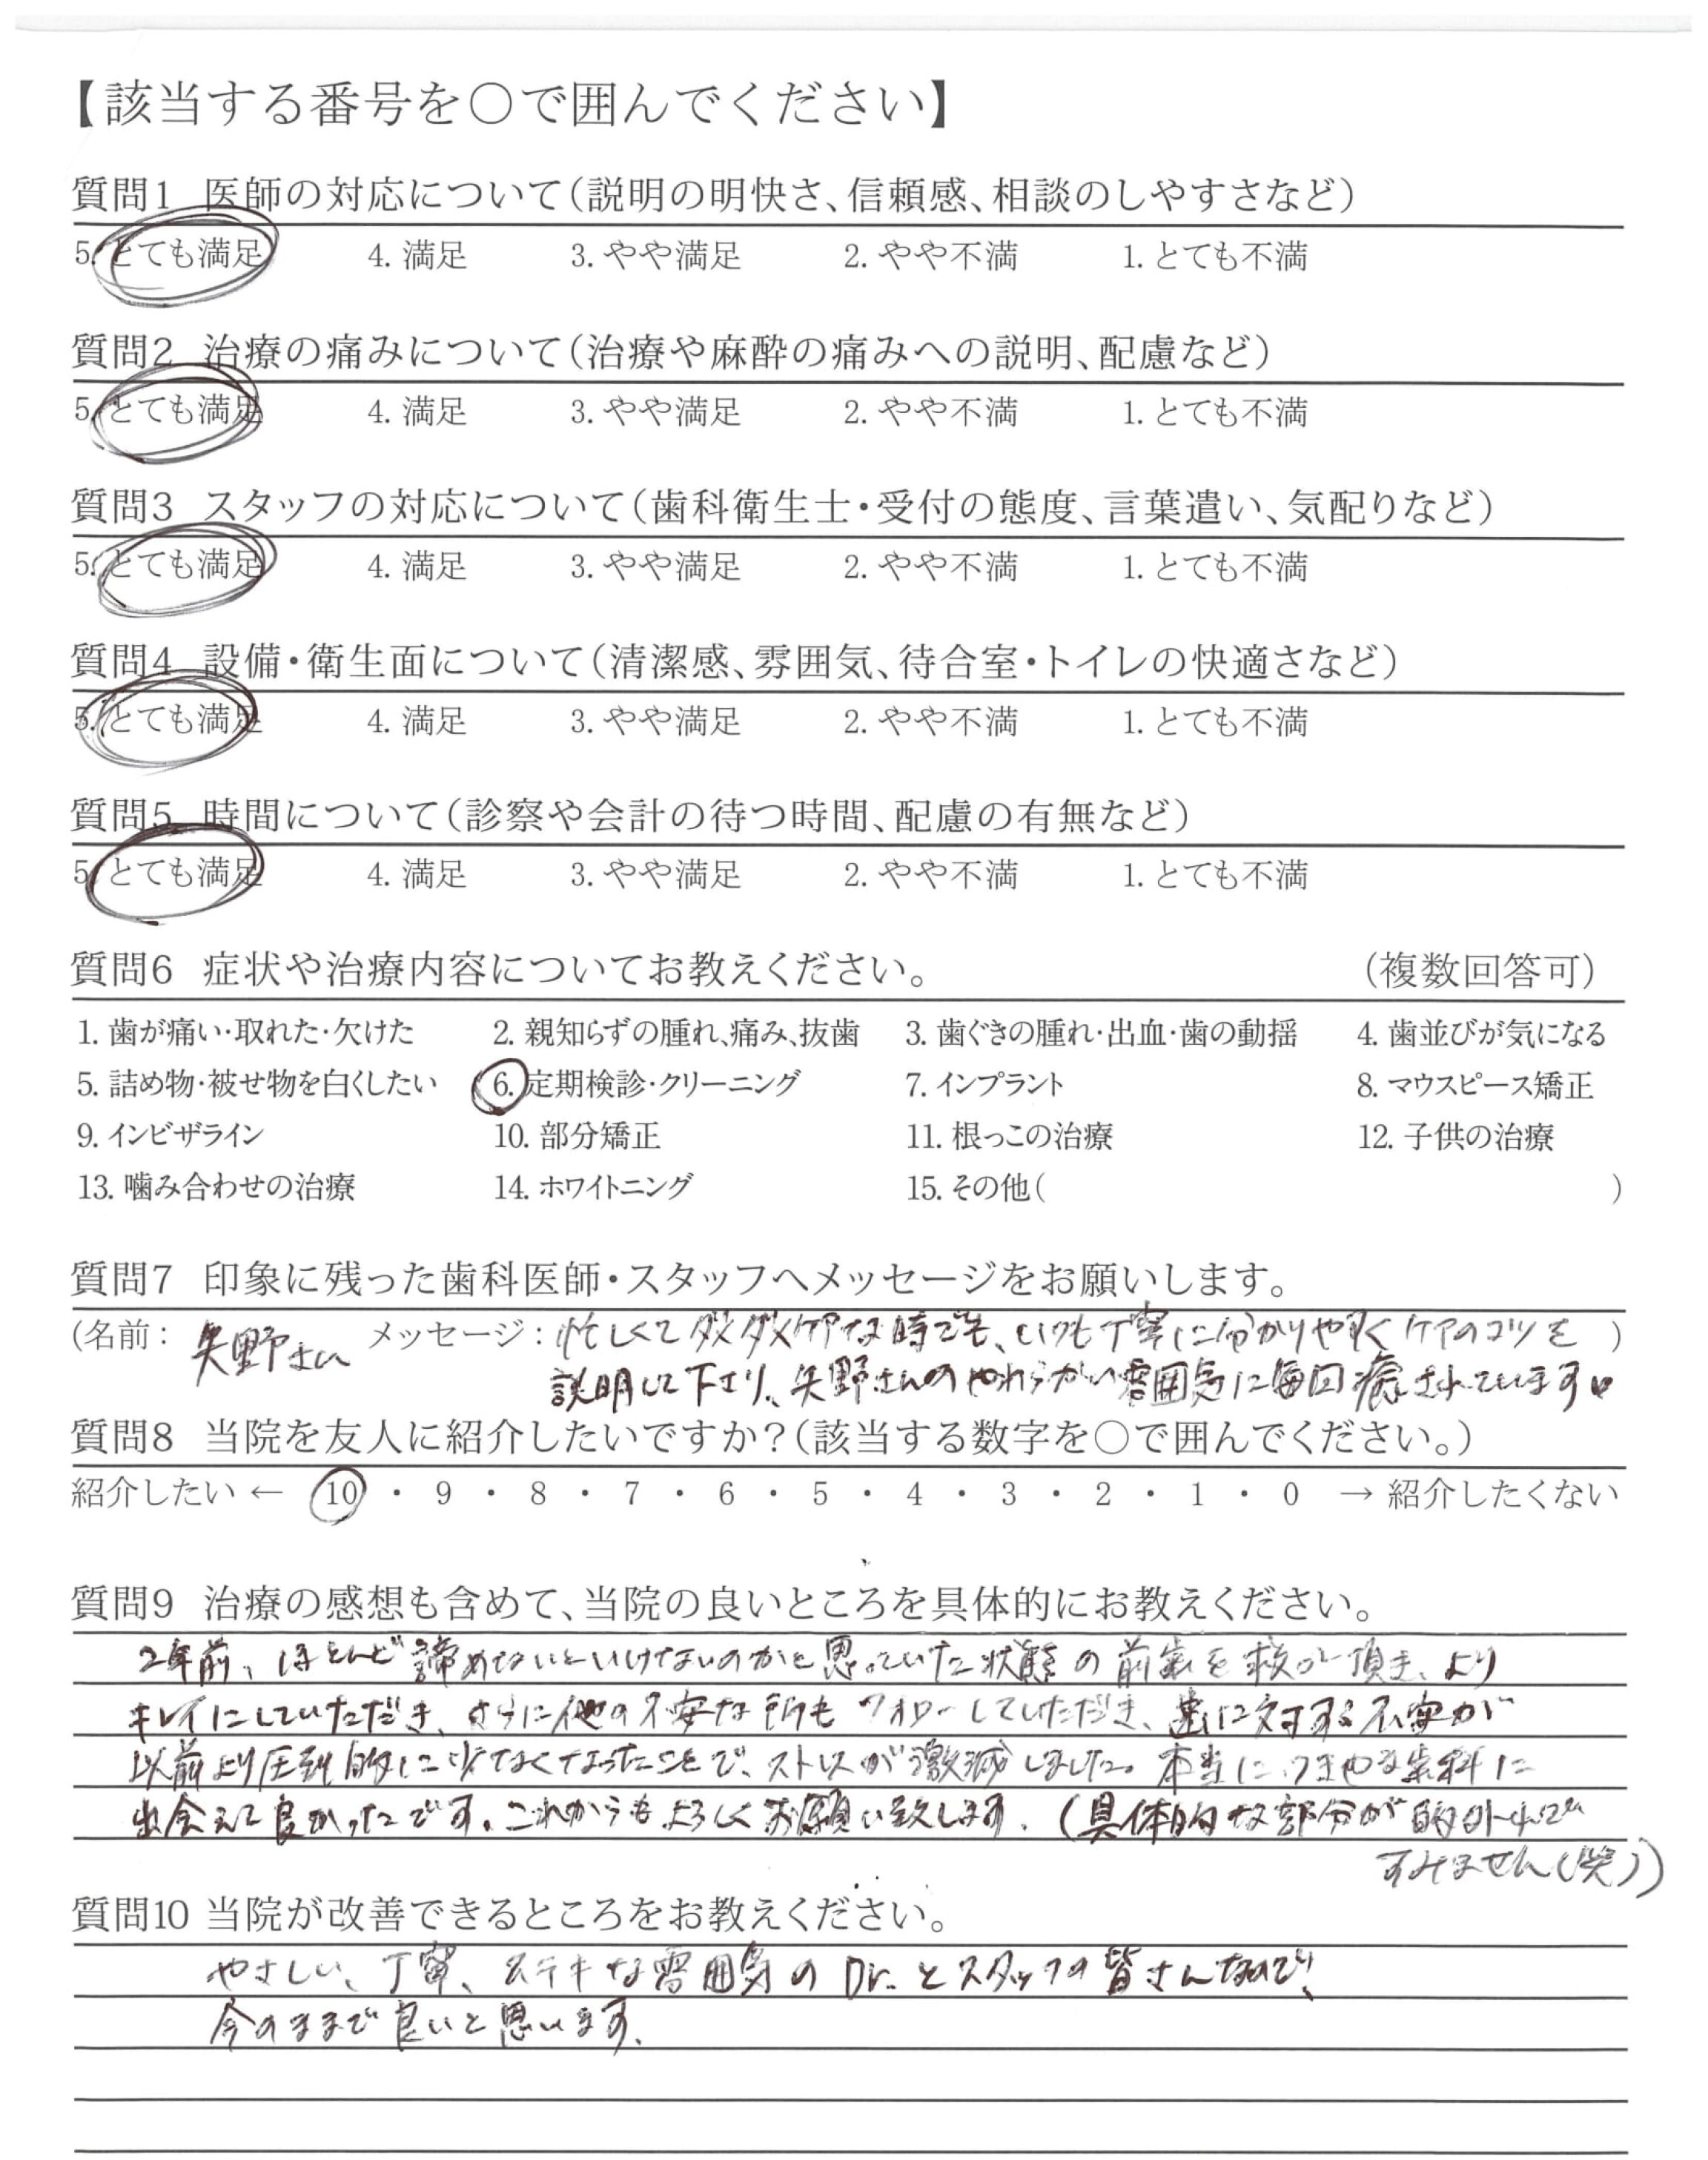 【該当する番号を〇で囲んでください】
質問1 医師の対応について（説明の明快さ、信頼感、相談のしやすさなど）
5. とても満足 4. 満足 3. やや満足 2. やや不満 1. とても不満
質問2 治療の痛みについて（治療や麻酔の痛みへの説明、配慮など）
5. とても満足 4. 満足 3. やや満足 2. やや不満 1. とても不満
質問3 スタッフの対応について（歯科衛生士・受付の態度、言葉遣い、気配りなど）
5. とても満足 4. 満足 3. やや満足 2. やや不満 1. とても不満
質問4 設備・衛生面について（清潔感、雰囲気、待合室・トイレの快適さなど）
5. とても満足 4. 満足 3. やや満足 2. やや不満 1. とても不満
質問5 時間について（診察や会計の待つ時間、配慮の有無など）
5. とても満足 4. 満足 3. やや満足 2. やや不満 1. とても不満
質問6 症状や治療内容についてお教えください。 （複数回答可）
1. 歯が痛い・取れた・欠けた 2. 親知らずの腫れ、痛み、抜歯 3. 歯ぐきの腫れ・出血・歯の動揺 4. 歯並びが気になる
5. 詰め物・被せ物を白くしたい 6. 定期検診・クリーニング 7. インプラント 8. マウスピース矯正
9. インビザライン 10. 部分矯正 11. 根っこの治療 12. 子供の治療
13. 噛み合わせの治療 14. ホワイトニング 15. その他（ ）
質問7 印象に残った歯科医師・スタッフへメッセージをお願いします。
（名前： 矢野さん メッセージ：忙しくてダメダメケアな時でも、いつも丁寧に分かりやすくケアのコツを ）
説明して下さり、矢野さんのやわらかい雰囲気に毎回癒されています♥
質問8 当院を友人に紹介したいですか？（該当する数字を〇で囲んでください。）
紹介したい ← 10 ・ 9 ・ 8 ・ 7 ・ 6 ・ 5 ・ 4 ・ 3 ・ 2 ・ 1 ・ 0 → 紹介したくない
質問9 治療の感想も含めて、当院の良いところを具体的にお教えください。
2年前、ほとんど諦めないといけないのかと思っていた状態の前歯を救って頂き、より
キレイにしていただき、さらに他の不安な所もフォローしていただき、歯に対する不安が
以前より圧倒的に少なくなったことで、ストレスが激減しました。本当につきやま歯科に
出会えて良かったです。これからもよろしくお願い致します。（具体的な部分が的外れで
すみません（笑））
質問10 当院が改善できるところをお教えください。
やさしい、丁寧、ステキな雰囲気のDr.とスタッフの皆さんなので、
今のままで良いと思います。